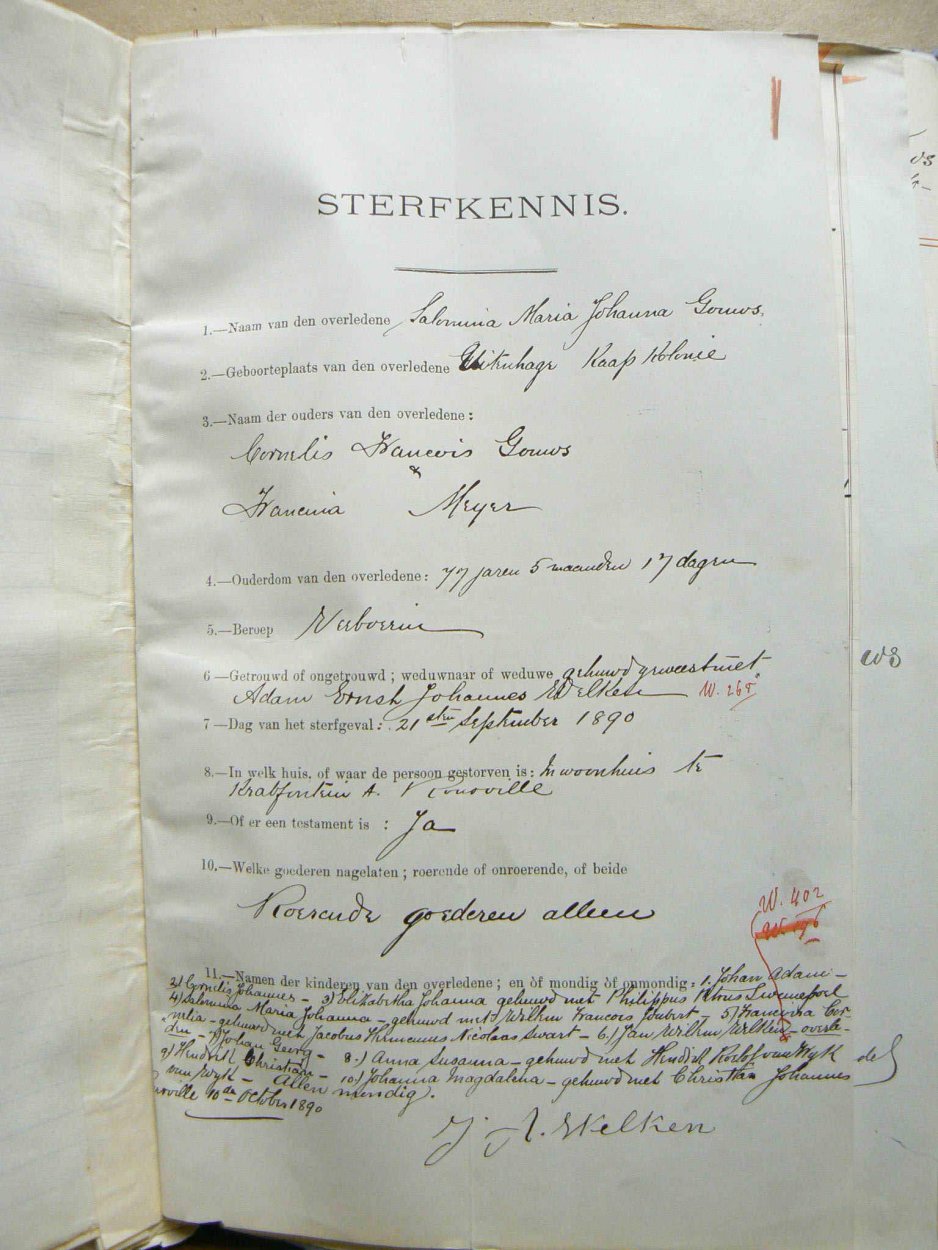 STERFKENNIS.
1.—Naam van den overledene Salomina Maria Johanna Gouws.
2.—Geboorteplaats van den overledene Uitenhage Kaap Kolonie
3.—Naam der ouders van den overledene:
Cornelis Francois Gouws
&
Francina Meyer
4.—Ouderdom van den overledene: 77 jaren 5 maanden 17 dagen
5.—Beroep Veeboerin
6—Getrouwd of ongetrouwd; weduwnaar of weduwe gehuwd geweest met
Adam Ernst Johannes Welken W. 265.
7—Dag van het sterfgeval: 21sten September 1890
8.—In welk huis, of waar de persoon gestorven is: In woonhuis te
Krabfontein A.
9.—Of er een testament is : Ja
10.—Welke goederen nagelaten; roerende of onroerende, of beide
Roerende goederen alleen
W. 402
11.—Namen der kinderen van den overledene; en òf mondig òf onmondig: 1. Johan Adam –
2) Cornelis Johannes – 3) Elizabetha Johanna gehuwd met Philippus Petrus
4) Salomina Maria Johanna – gehuwd met Willem Francois Joubert – 5) Francina Cor-
nelia – gehuwd met Jacobus Hermanus Nicolaas Swart – 6.) Jan Willem Welken – overle-
den – 7) Johan Georg – 8.) Anna Susanna – gehuwd met Hendrik van Wyk
9) Hendrik Christiaan – 10.) Johanna Magdalena – gehuwd met Christian Johannes de
van Wyk – Allen mondig.
10de October 1890
J. A. Welken
ws
ws